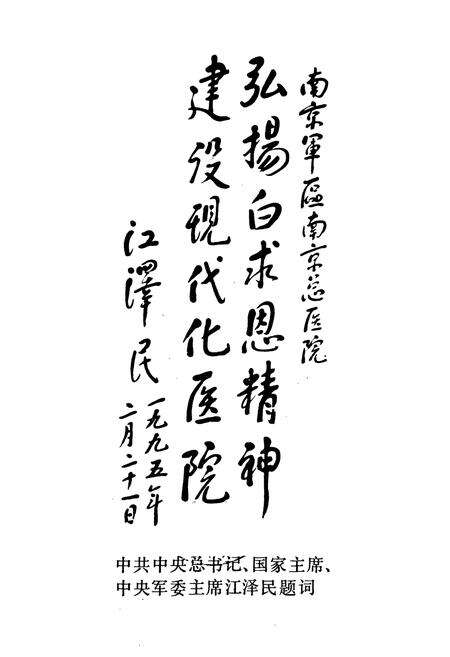 南京軍區南京总医院
弘揚白求恩精神
建设現代化医院
江澤民
一九九五年
二月二十一日
中共中央总书记、国家主席、
中央军委主席江泽民题词